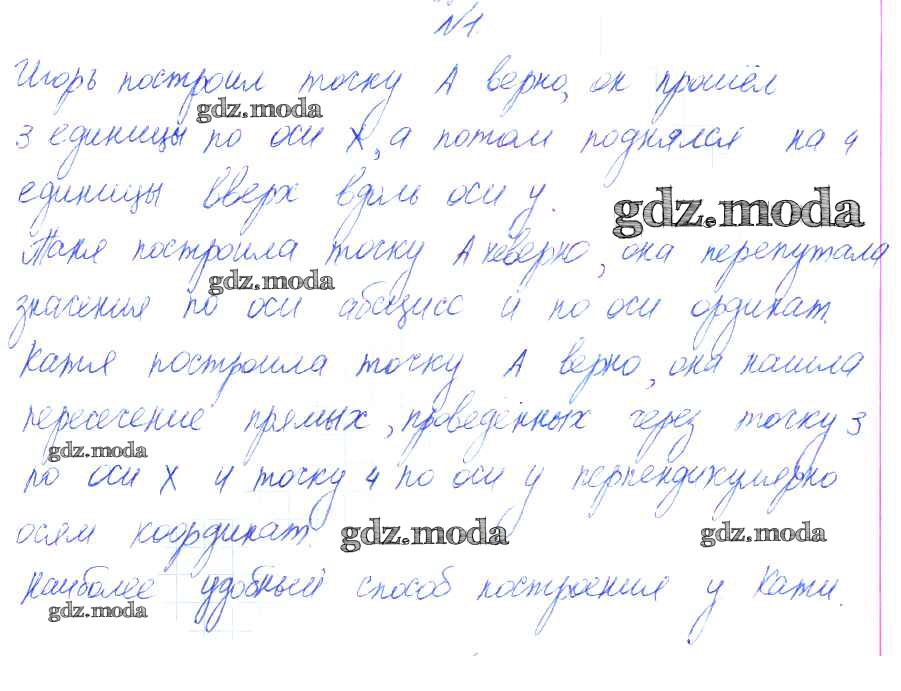 №1.
Игорь построил точку А верно, он прошёл
gdz.moda
3 единицы по оси X, а потом поднялся на 4
единицы вверх вдоль оси y.
gdz.moda
Таня построила точку А неверно, она перепутала
gdz.moda
значения по оси абсцисс и по оси ординат.
Катя построила точку А верно, она нашла
пересечение прямых, проведённых через точку 3
gdz.moda
по оси X и точку 4 по оси y перпендикулярно
осям координат.
gdz.moda
gdz.moda
Наиболее удобный способ построения у Кати.
gdz.moda